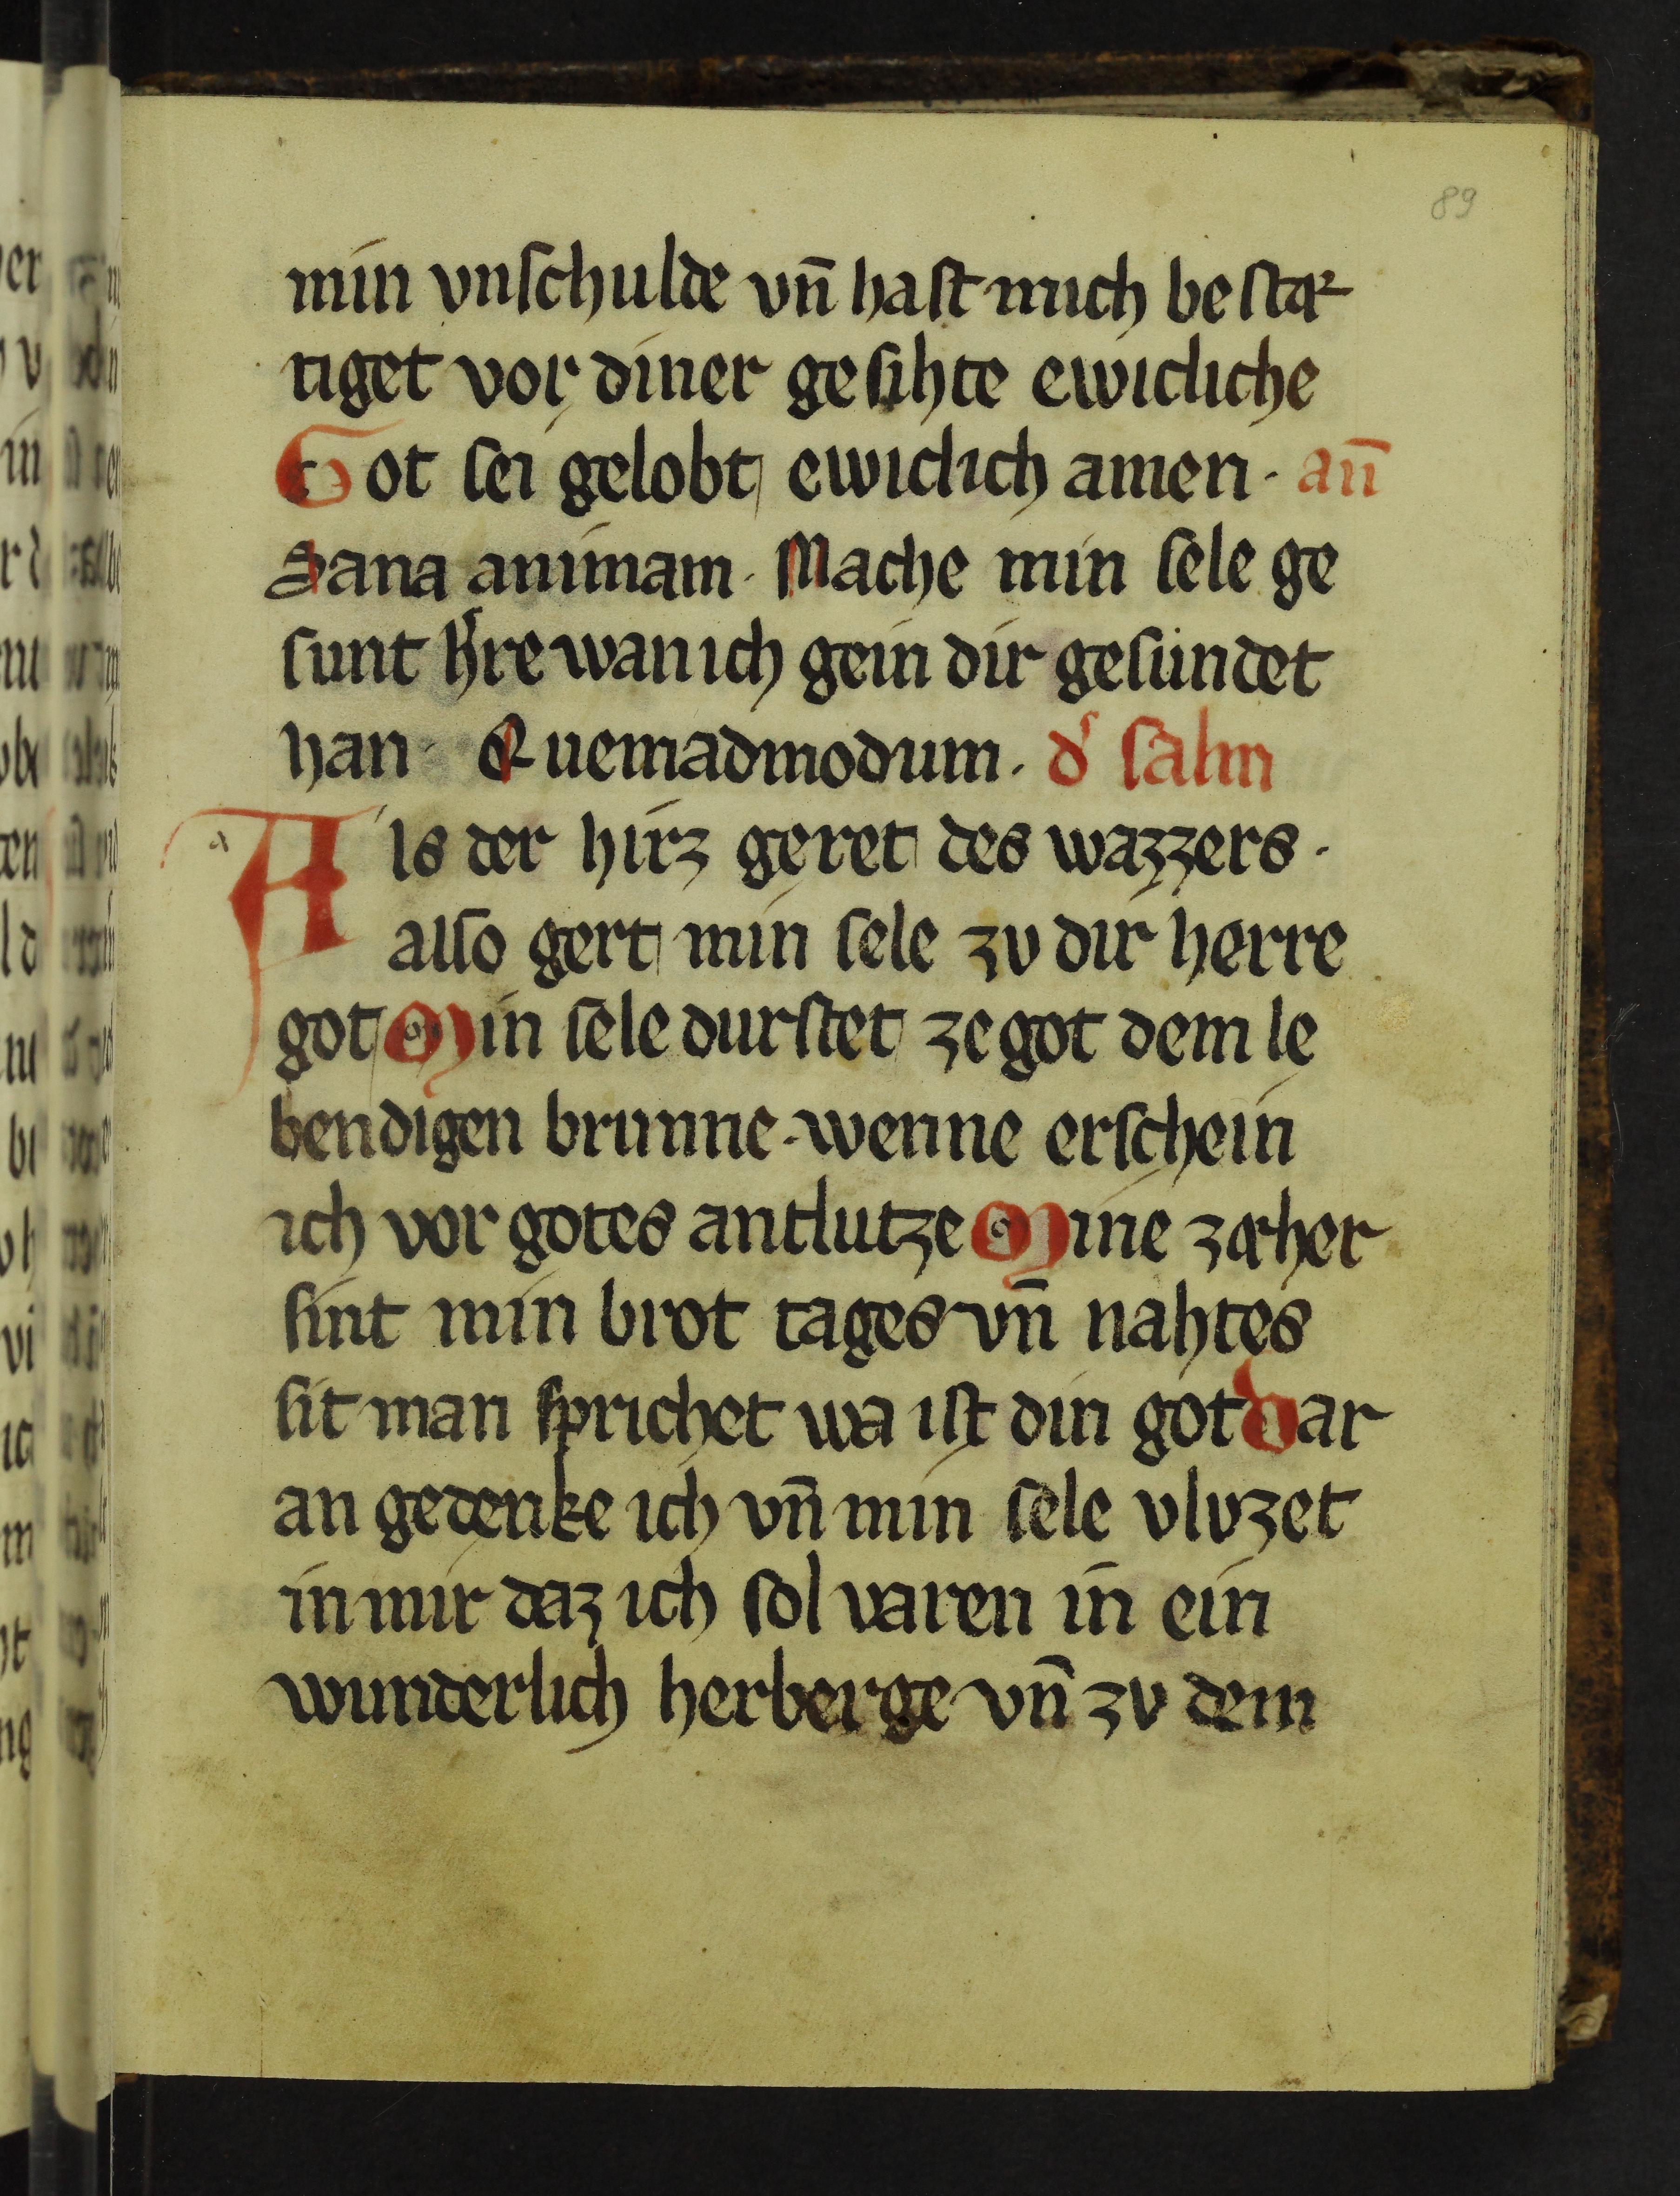 89
min vnſchulde vn̄ haſt mich beſtæ
tiget vor diner geſihte ewicliche
Got ſei gelobt ewiclich amen · an̄
Sana animam · Mache min ſele ge
ſunt h̓re wan ich gein dir geſundet
han · Quemadmodum · d̓ ſalm
Als der hirz geret des wazzers ·
alſo gert min ſele zv dir herre
got Min ſele durſtet ze got dem le
bendigen brunne · wenne erſchein
ich vor gotes antlutze Mine zæher
ſint min brot tages vn̄ nahtes
ſit man ſprichet wa iſt din got Dar
an gedenke ich vn̄ min ſele vlvzet
in mir daz ich ſol varen in ein
wunderlich herberge vn̄ zv dem